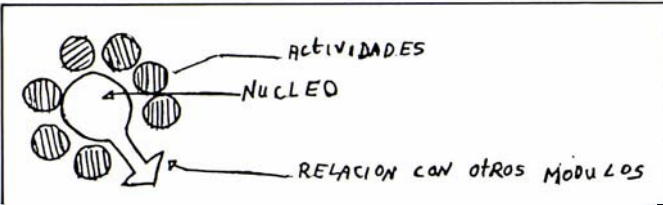 ACTIVIDADES
NUCLEO
RELACION CON OTROS MÓDULOS